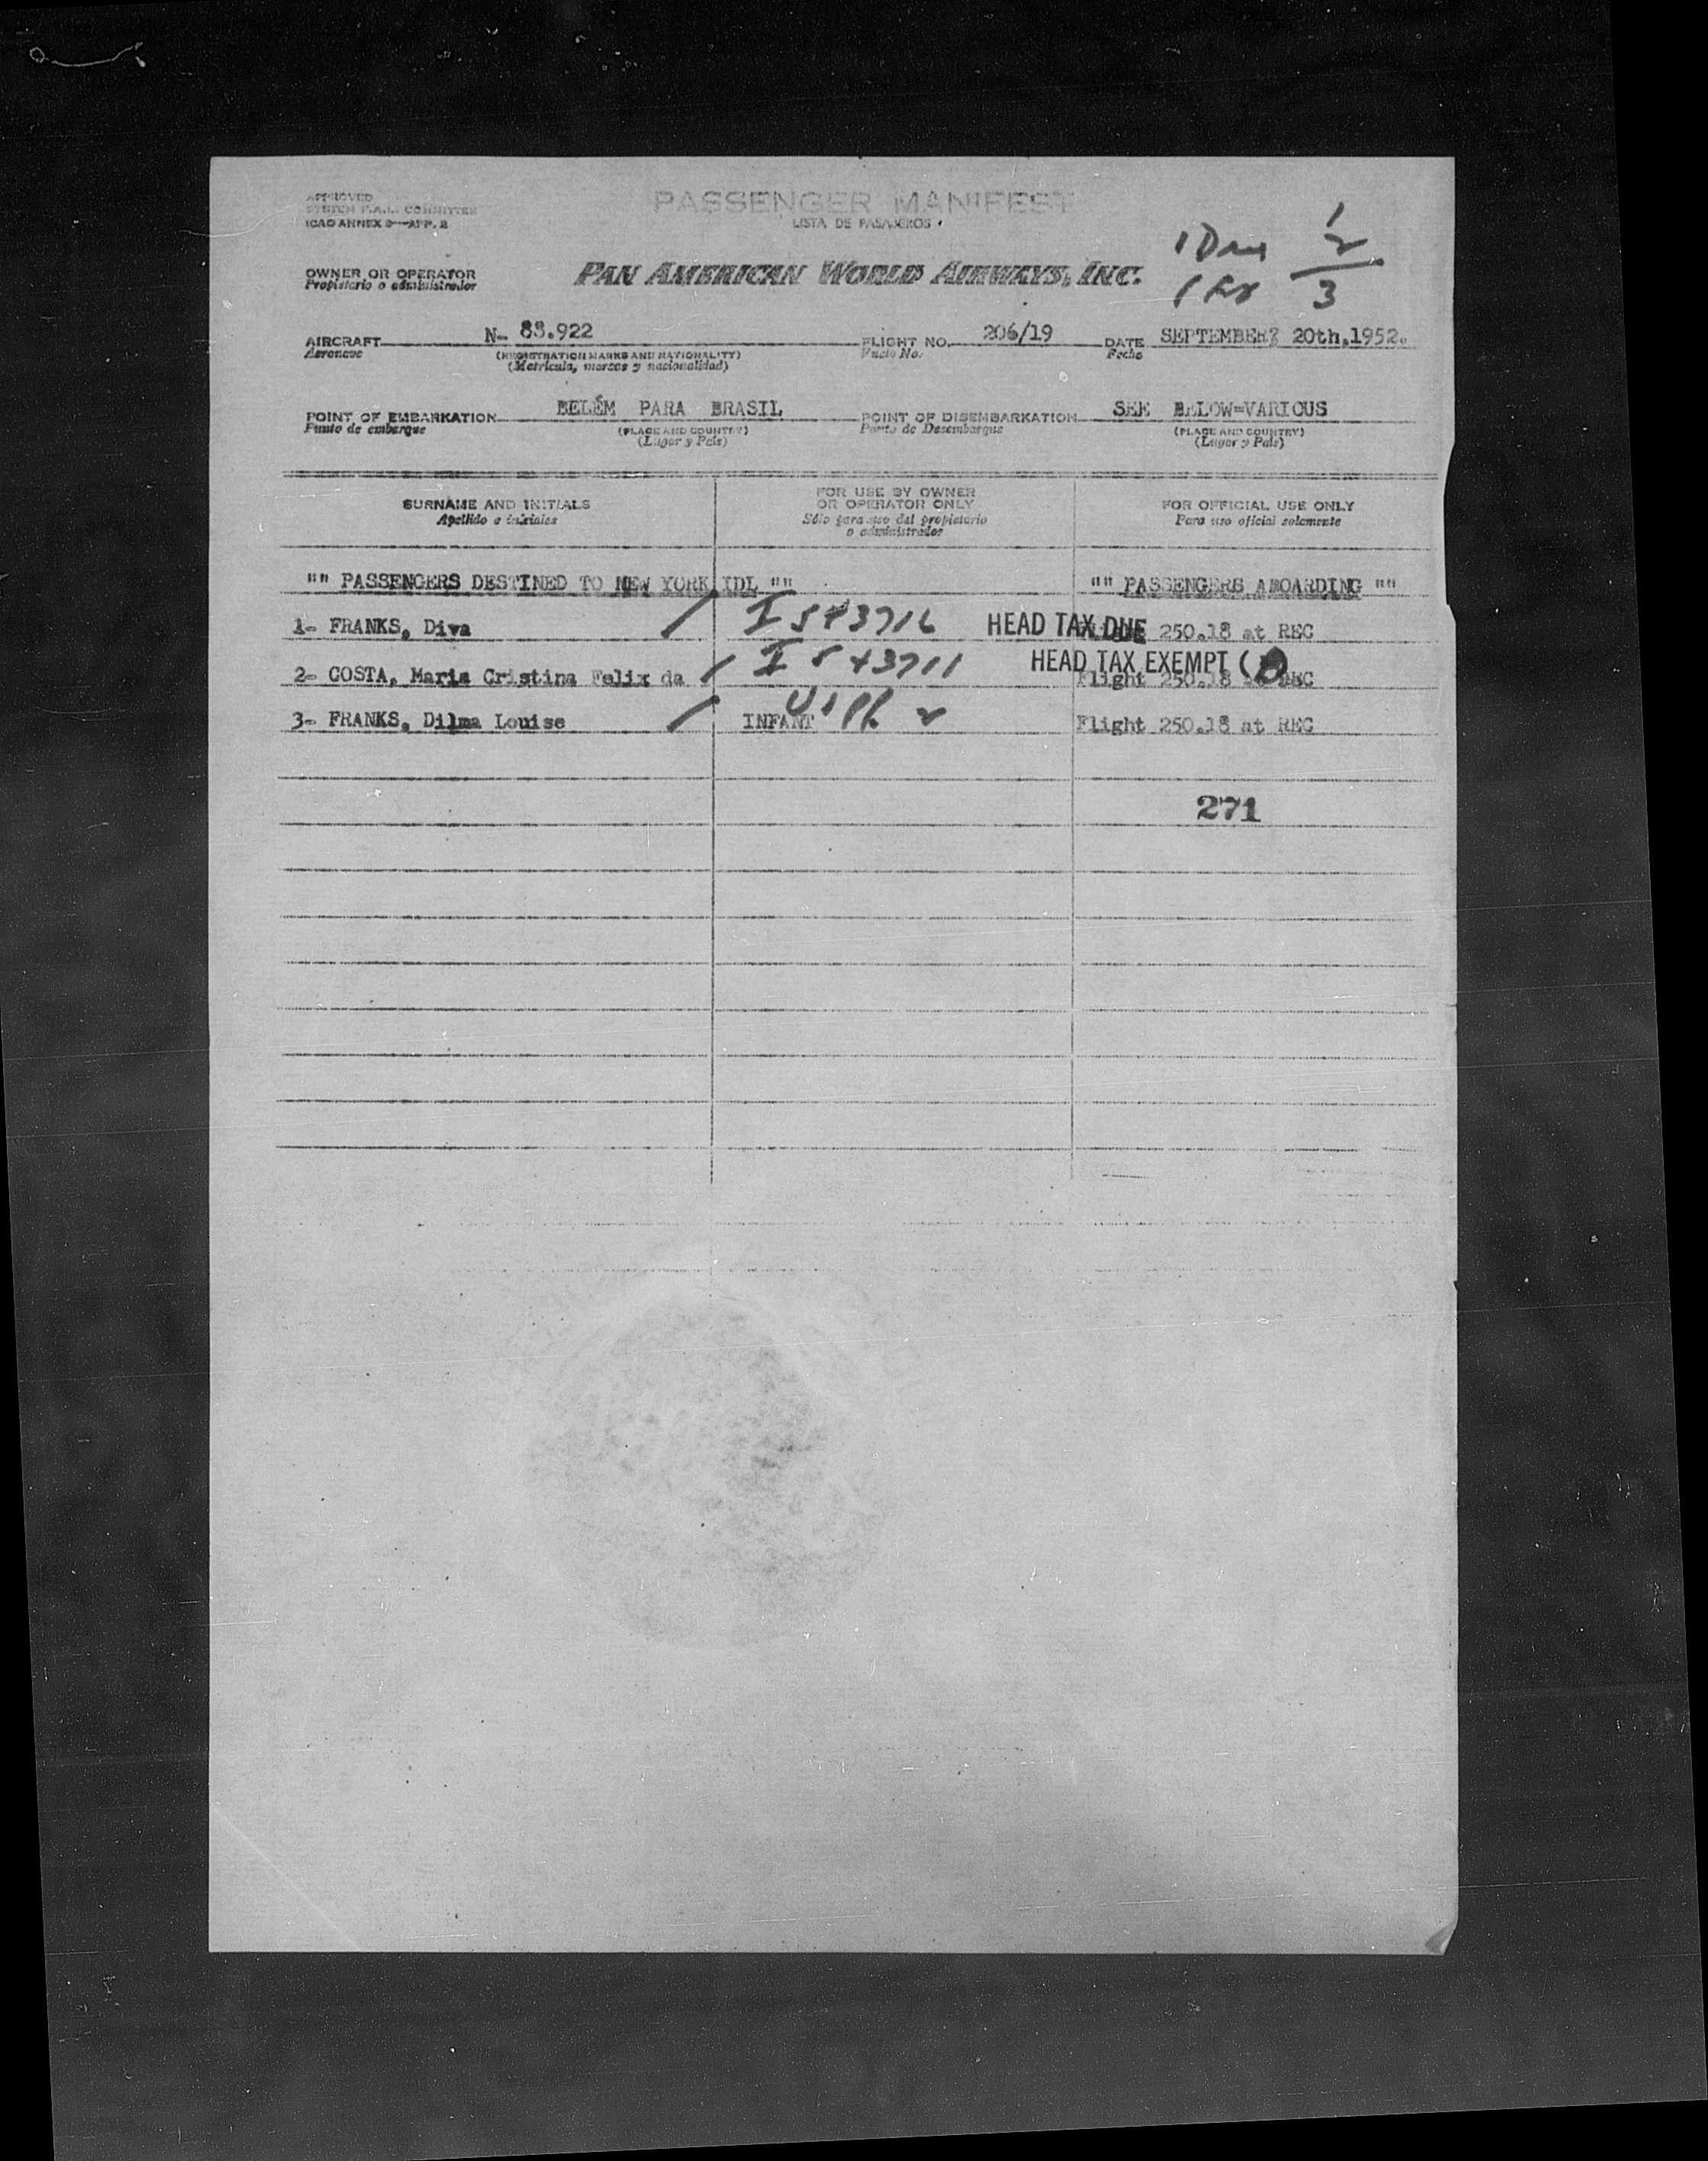 APPROVED
SYSTEM F.A.L. COMMITTEE
ICAO ANNEX 9—APP. 2
PASSENGER MANIFEST
LISTA DE PASAJEROS
1 Due 1
1 Ex 2
3
OWNER OR OPERATOR
Propietario o administrador
PAN AMERICAN WORLD AIRWAYS, INC.
AIRCRAFT N- 88.922 FLIGHT NO. 206/19 DATE SEPTEMBER 20th,1952.
Aeronave (REGISTRATION MARKS AND NATIONALITY) Vuelo No. Fecha
(Matrícula, marcas y nacionalidad)
POINT OF EMBARKATION BELÉM PARA BRASIL POINT OF DISEMBARKATION SEE BELOW=VARIOUS
Punto de embarque (PLACE AND COUNTRY) Punto de Desembarque (PLACE AND COUNTRY)
(Lugar y País) (Lugar y País)
SURNAME AND INITIALS FOR USE BY OWNER OR OPERATOR ONLY FOR OFFICIAL USE ONLY
Apellido e iniciales Sólo para uso del propietario o administrador Para uso oficial solamente
"" PASSENGERS DESTINED TO NEW YORK IDL "" "" PASSENGERS ABOARDING ""
1- FRANKS, Diva / I 543716 HEAD TAX DUE 250.18 at REC
2- COSTA, Maria Cristina Felix da / I 543711 HEAD TAX EXEMPT ( Flight 250.18 at REC
3- FRANKS, Dilma Louise / INFANT Flight 250.18 at REC
271